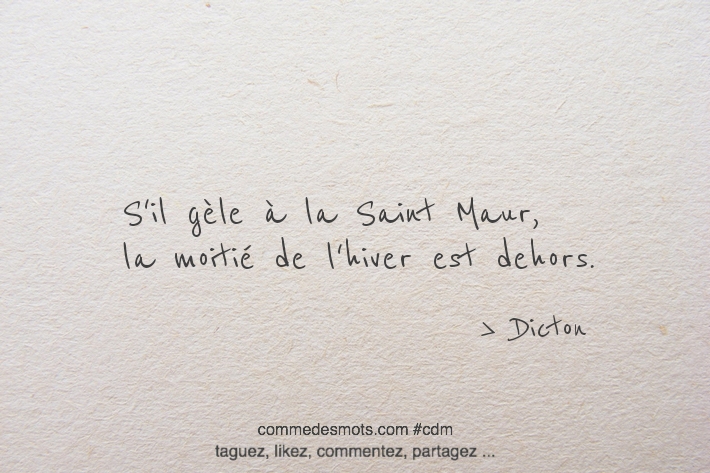 S'il gèle à la Saint Maur,
la moitié de l'hiver est dehors.
> Dicton
commedesmots.com #cdm
taguez, likez, commentez, partagez ...